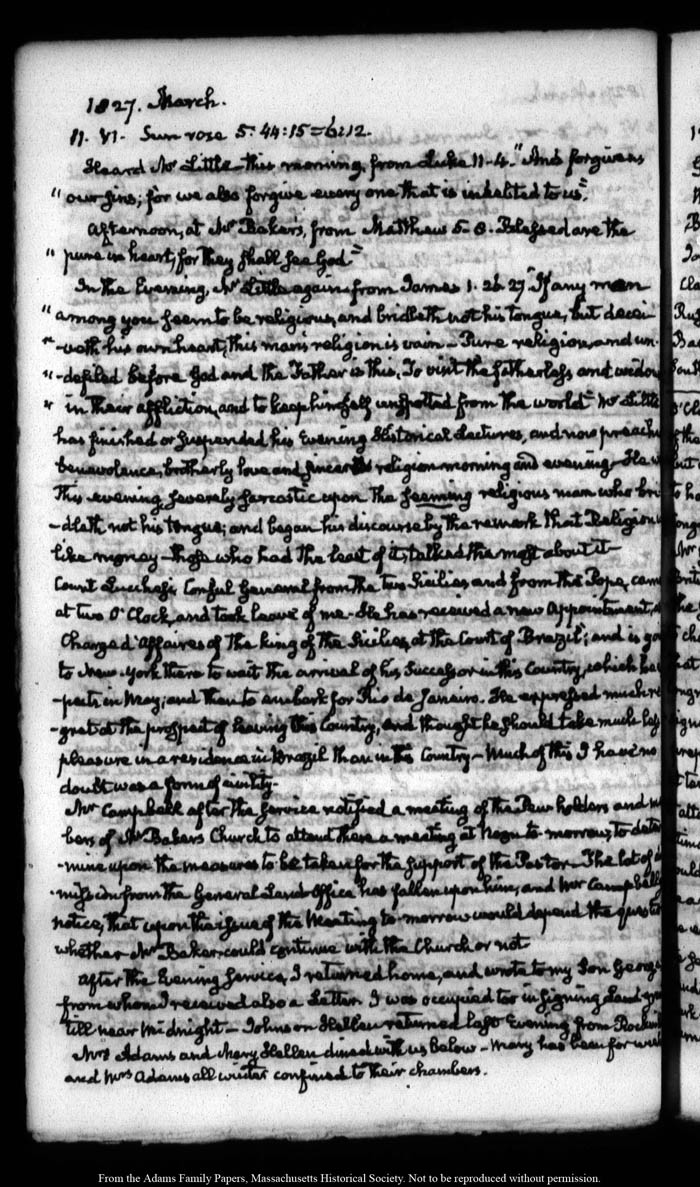 1827. March.
11. VI. Sun rose 5:44:15=6:12.
Heard Mr Little this morning, from Luke 11. 4. "And forgive us
" our sins; for we also forgive every one that is indebted to us".
Afternoon, at Mr Baker's, from Matthew 5. 8. Blessed are the
" pure in heart; for they shall see God"
In the Evening, Mr Little again from James 1. 26. 27 "If any man
" among you seem to be religious, and bridleth not his tongue, but decei
" -veth his own heart, this man's religion is vain - Pure religion, and un
" -defiled before God and the Father is this, To visit the fatherless and widow
" in their affliction, and to keep himself unspotted from the world" Mr Little
has finished or suspended his Evening Historical Lectures, and now preach
benevolence, brotherly love and sincere religion morning and evening - He w
This evening, severely sarcastic upon the seeming religious man who bri
-dleth not his tongue; and began his discourse by the remark that Religion
like money - those who had the least of it, talked the most about it -
Count Lucchesi, Consul General from the two Sicilies, and from the Pope, cam
at two O'Clock, and took leave of me - He has received a new Appointment, a
Chargé d'Affaires of the King of the Sicilies, at the Court of Brazil; and is go
to New-York there to wait the arrival of his Successor in this Country, which he
-pects in May; and then to embark for Rio de Janeiro. He expressed much re
-gret at the prospect of leaving this Country, and thought he should take much less
pleasure in a residence in Brazil than in this Country - Much of this I have no
doubt was a form of civility -
Mr Campbell after the service notified a meeting of the Pew holders and m
bers of Mr Baker's Church to attend there a meeting at Noon to-morrow, to deter
-mine upon the measures to be taken for the support of the Pastor - The lot of d
-mission from the General Land Office has fallen upon him, and Mr Campbell
notice, that upon the issue of the Meeting to-morrow would depend the quest
whether Mr Baker could continue with the Church or not
After the Evening service, I returned home, and wrote to my Son George
from whom I received also a Letter. I was occupied too in signing Land
till near Midnight - Johnson Hellen returned last Evening from Rockvil
Mrs Adams and Mary Hellen dined with us below - Mary has been for week
and Mrs Adams all winter confined to their chambers.
From the Adams Family Papers, Massachusetts Historical Society. Not to be reproduced without permission.